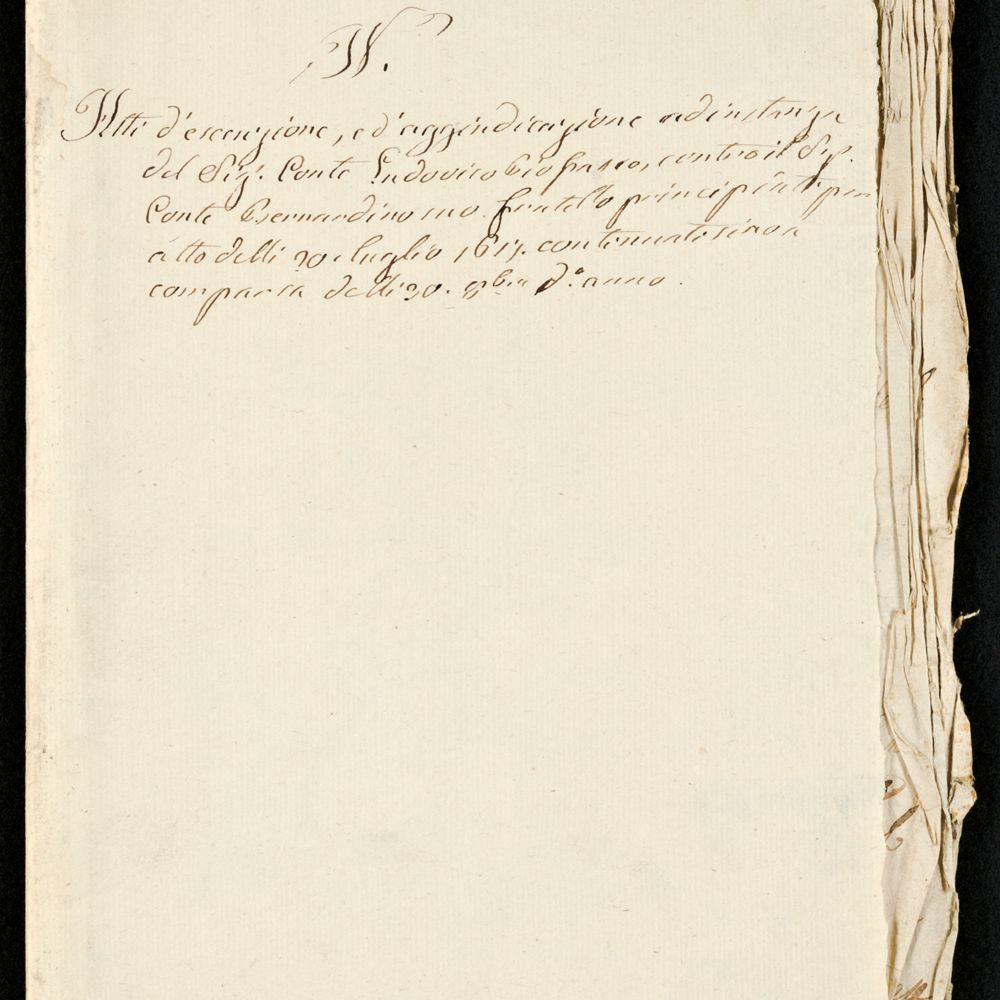 W.
Atti d'esecuzione, e d'aggiudicazione ad instanza
del Sig.r Conte Ludovico contro il Sig.
Conte Bernardino suo fratello principianti per
atto delli 20 luglio 1617. continuati sino a
comparsa delli 30. d.o anno.